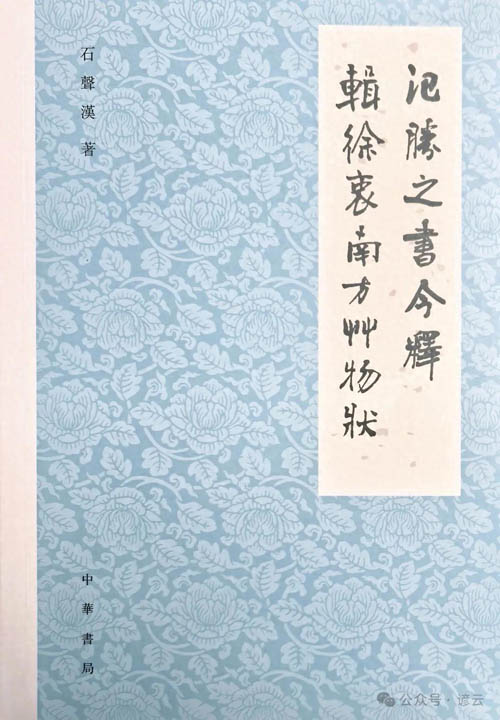 氾勝之書今釋
輯徐衷南方艸物狀
石聲漢 著
中華書局
公众号·谚云